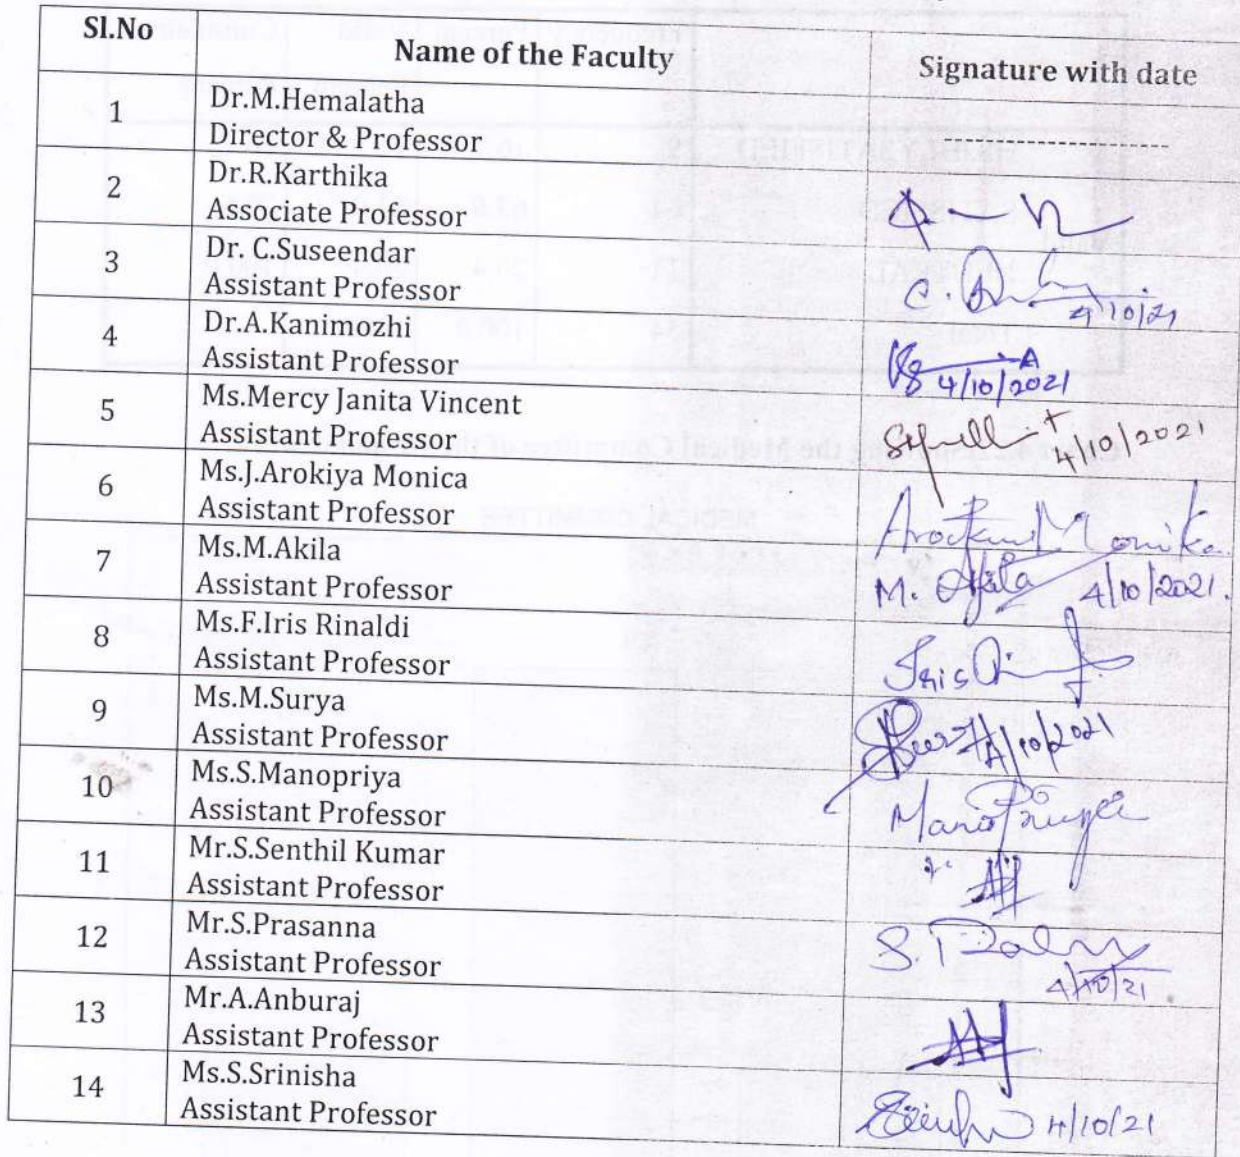 Sl.No Name of the Faculty Signature with date
1 Dr.M.Hemalatha
Director & Professor --------------------
2 Dr.R.Karthika
Associate Professor
3 Dr. C.Suseendar
Assistant Professor 4/10/21
4 Dr.A.Kanimozhi
Assistant Professor 4/10/2021
5 Ms.Mercy Janita Vincent
Assistant Professor 4/10/2021
6 Ms.J.Arokiya Monica
Assistant Professor
7 Ms.M.Akila M. Akila 4/10/2021.
Assistant Professor
8 Ms.F.Iris Rinaldi
Assistant Professor Iris
9 Ms.M.Surya
Assistant Professor 4/10/2021
10 Ms.S.Manopriya
Assistant Professor ManoPriya
11 Mr.S.Senthil Kumar
Assistant Professor
12 Mr.S.Prasanna
Assistant Professor 4/10/21
13 Mr.A.Anburaj
Assistant Professor
14 Ms.S.Srinisha
Assistant Professor 4/10/21